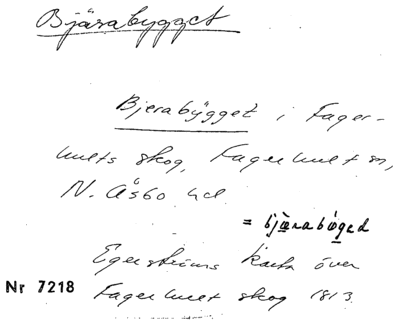 Bjärabygget
Bjerabÿgget i Fager-
hults skog, Fagerhult sn,
N. Åsbo hd
= bjærabøged
Egerströms karta över
Nr 7218
Fagerhult skog 1813